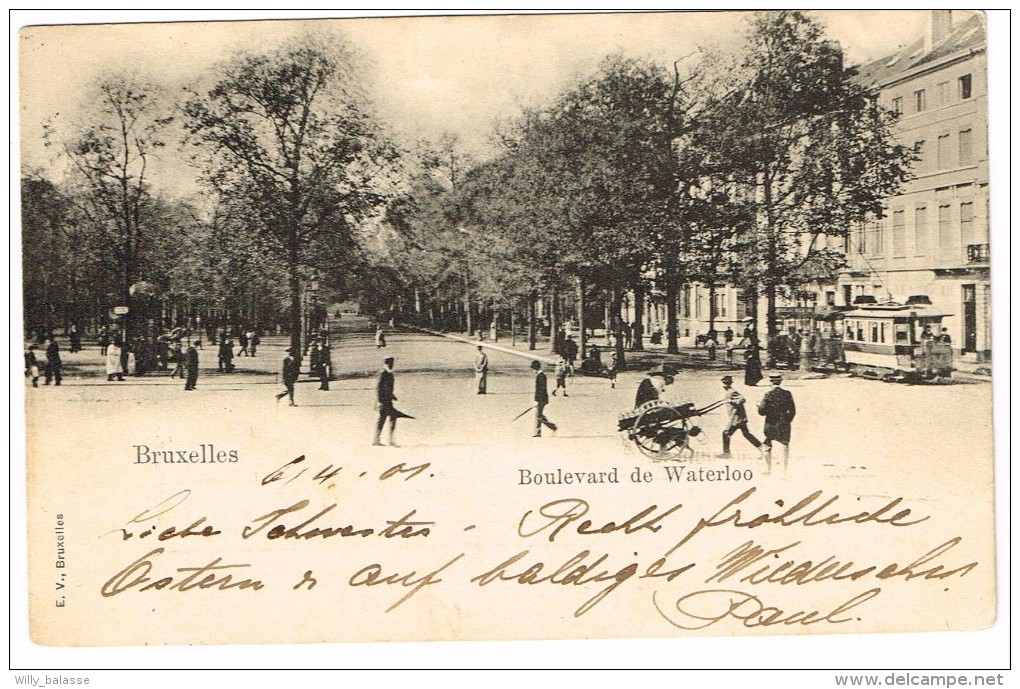 Bruxelles
Boulevard de Waterloo
6/4.01.
Liebe Schwester - Recht fröhliche
Ostern & auf baldiges Wiedersehen
Paul
E. V., Bruxelles
Willy_balasse
www.delcampe.net